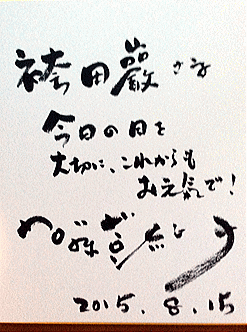 袴田巖さま
今日の日を
大切に、これからも
お元氣で!
2015.8.15